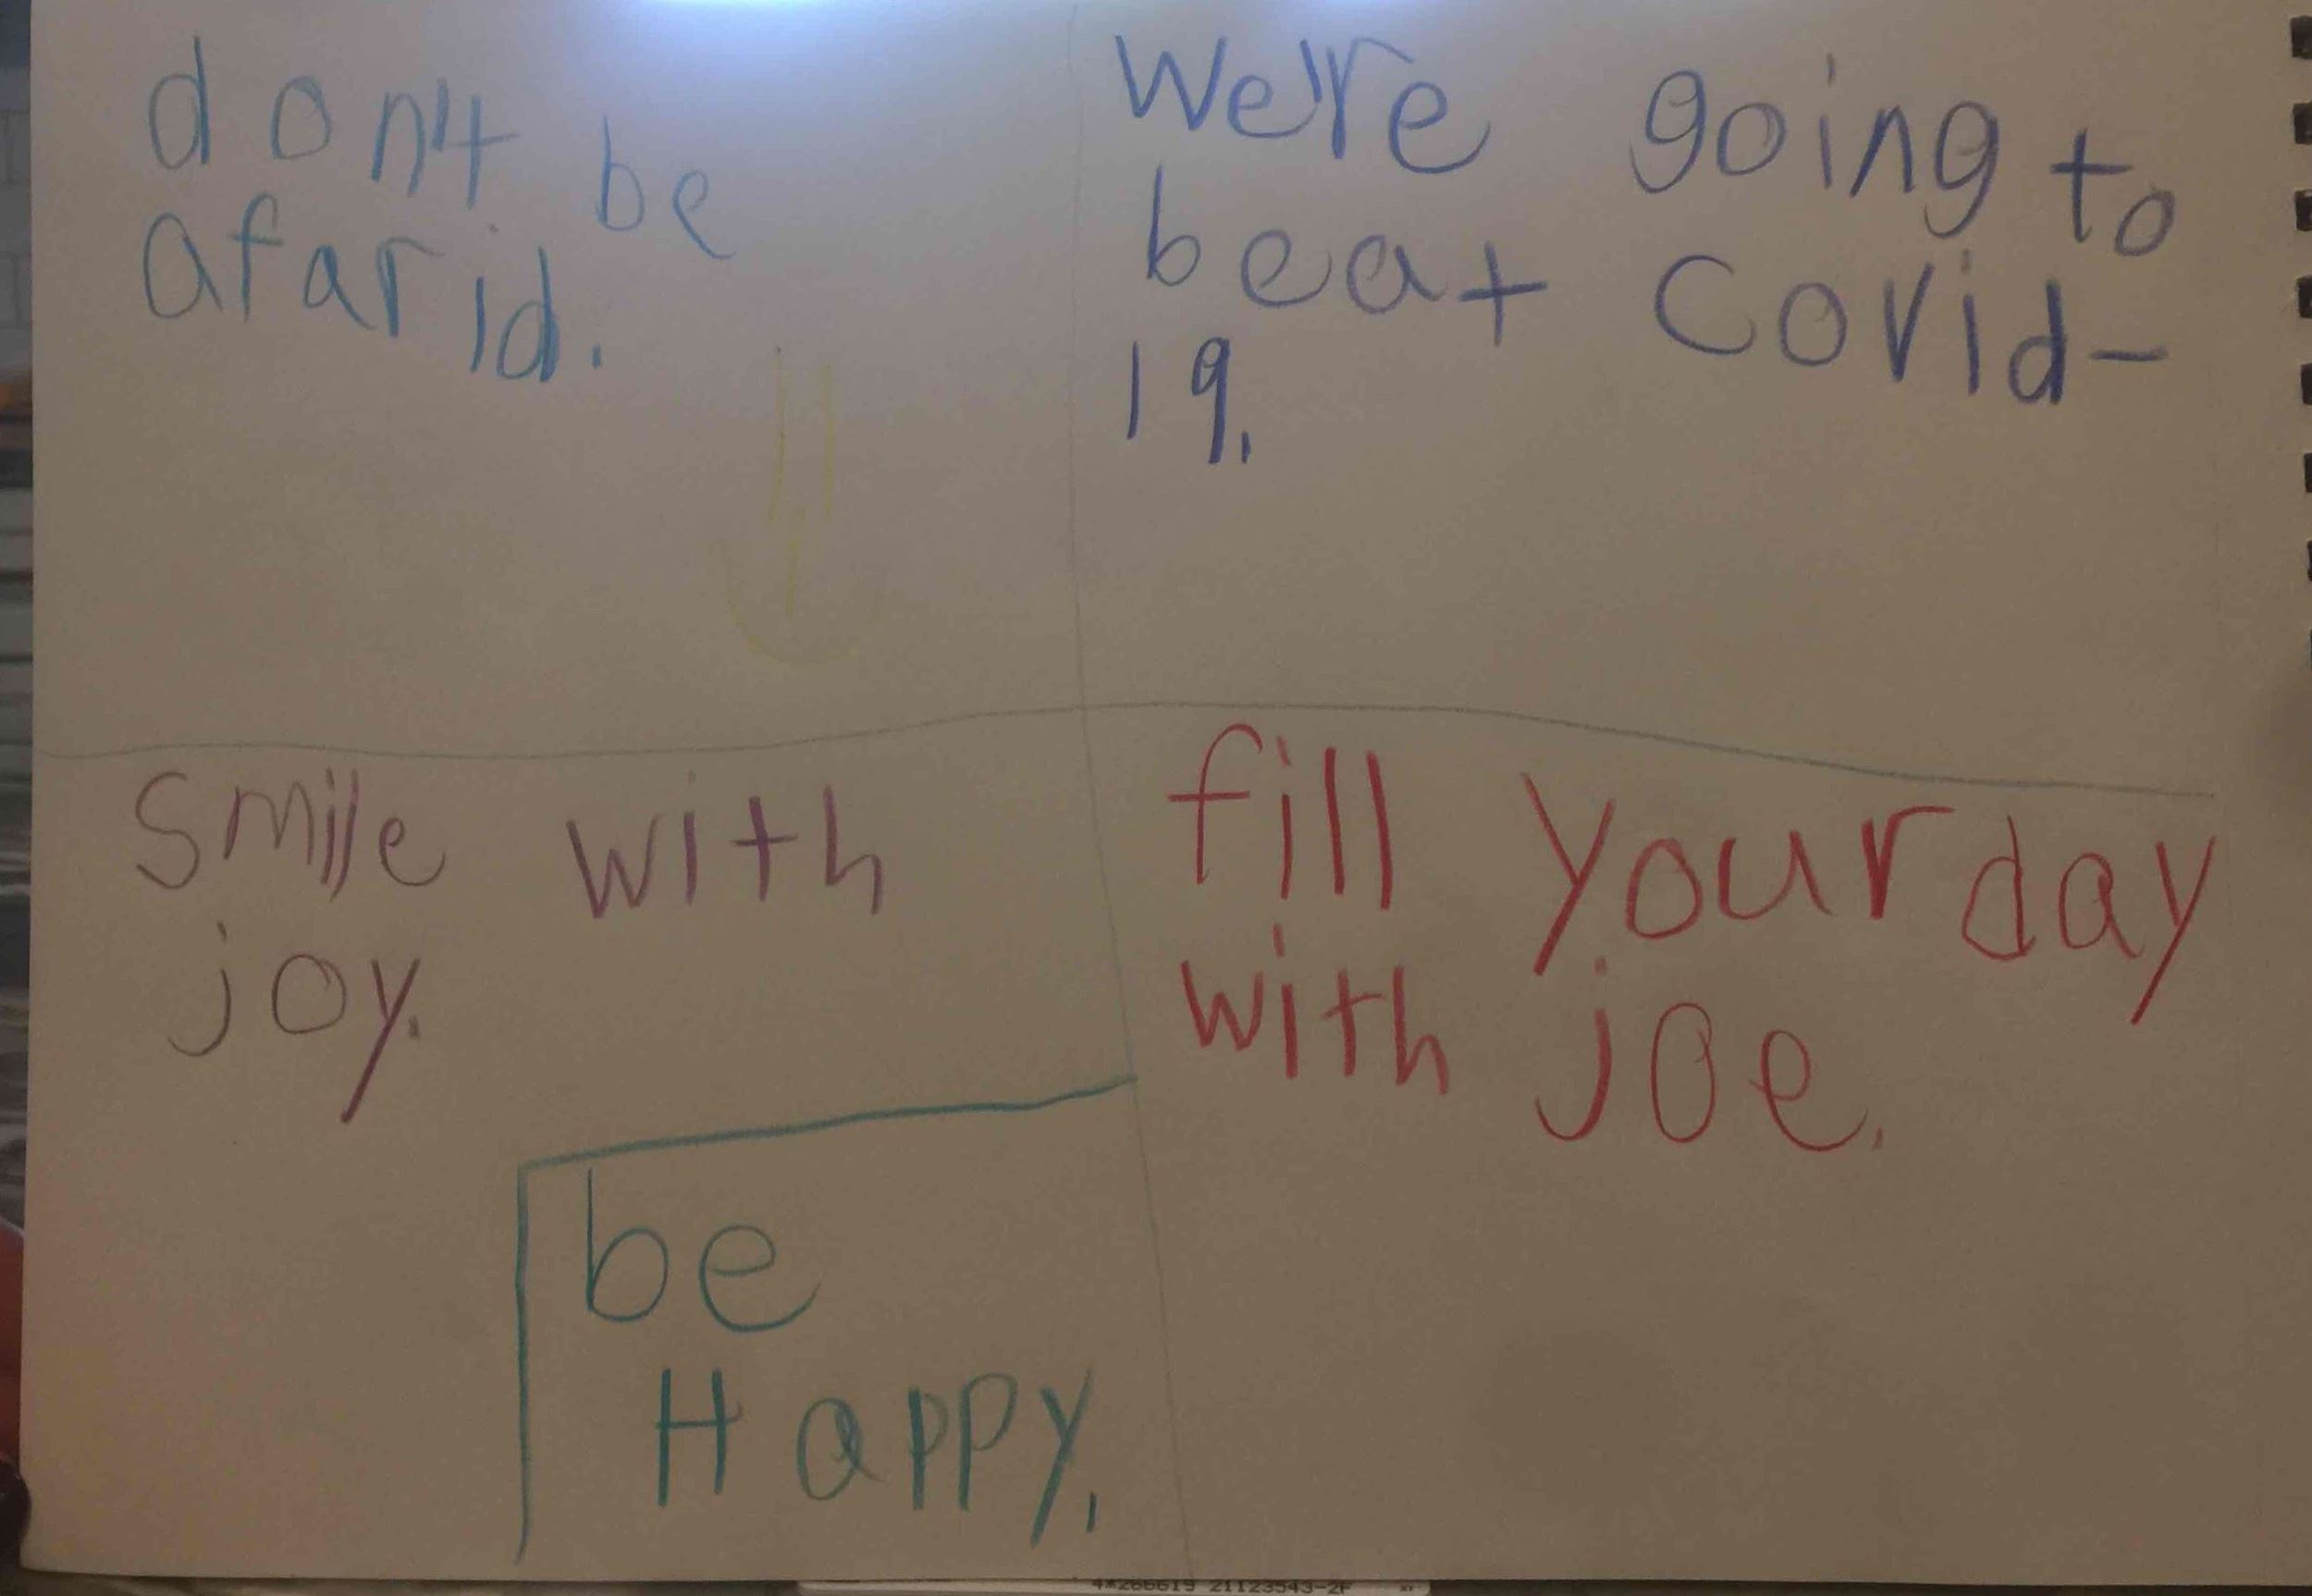 don't be
afarid.
We're going to
beat covid-
19.
smile with
joy.
fill your day
with joe.
be
Happy.